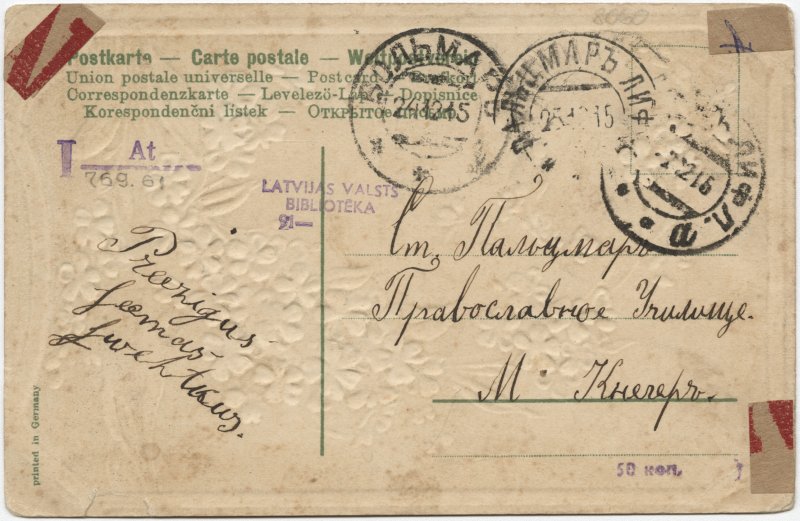 Postkarte — Carte postale — Weltpostverein
Union postale universelle — Postcard —
Correspondenzkarte — Levelező-Lap — Dopisnice
Korespondenční listek — Открытое письмо
At
769. 61
LATVIJAS VALSTS
BIBLIOTĒKA
91—
ВОЛЬМАРЪ
24 12 15
ПАЛЬЦМАРЪ ЛИФ
25 12 15
ЛИФЛ.
12 15
Preezigus
seemas
swehtkus.
Ст. Пальцмаръ
Православное Училище.
М Кнегеръ.
printed in Germany
50 коп.